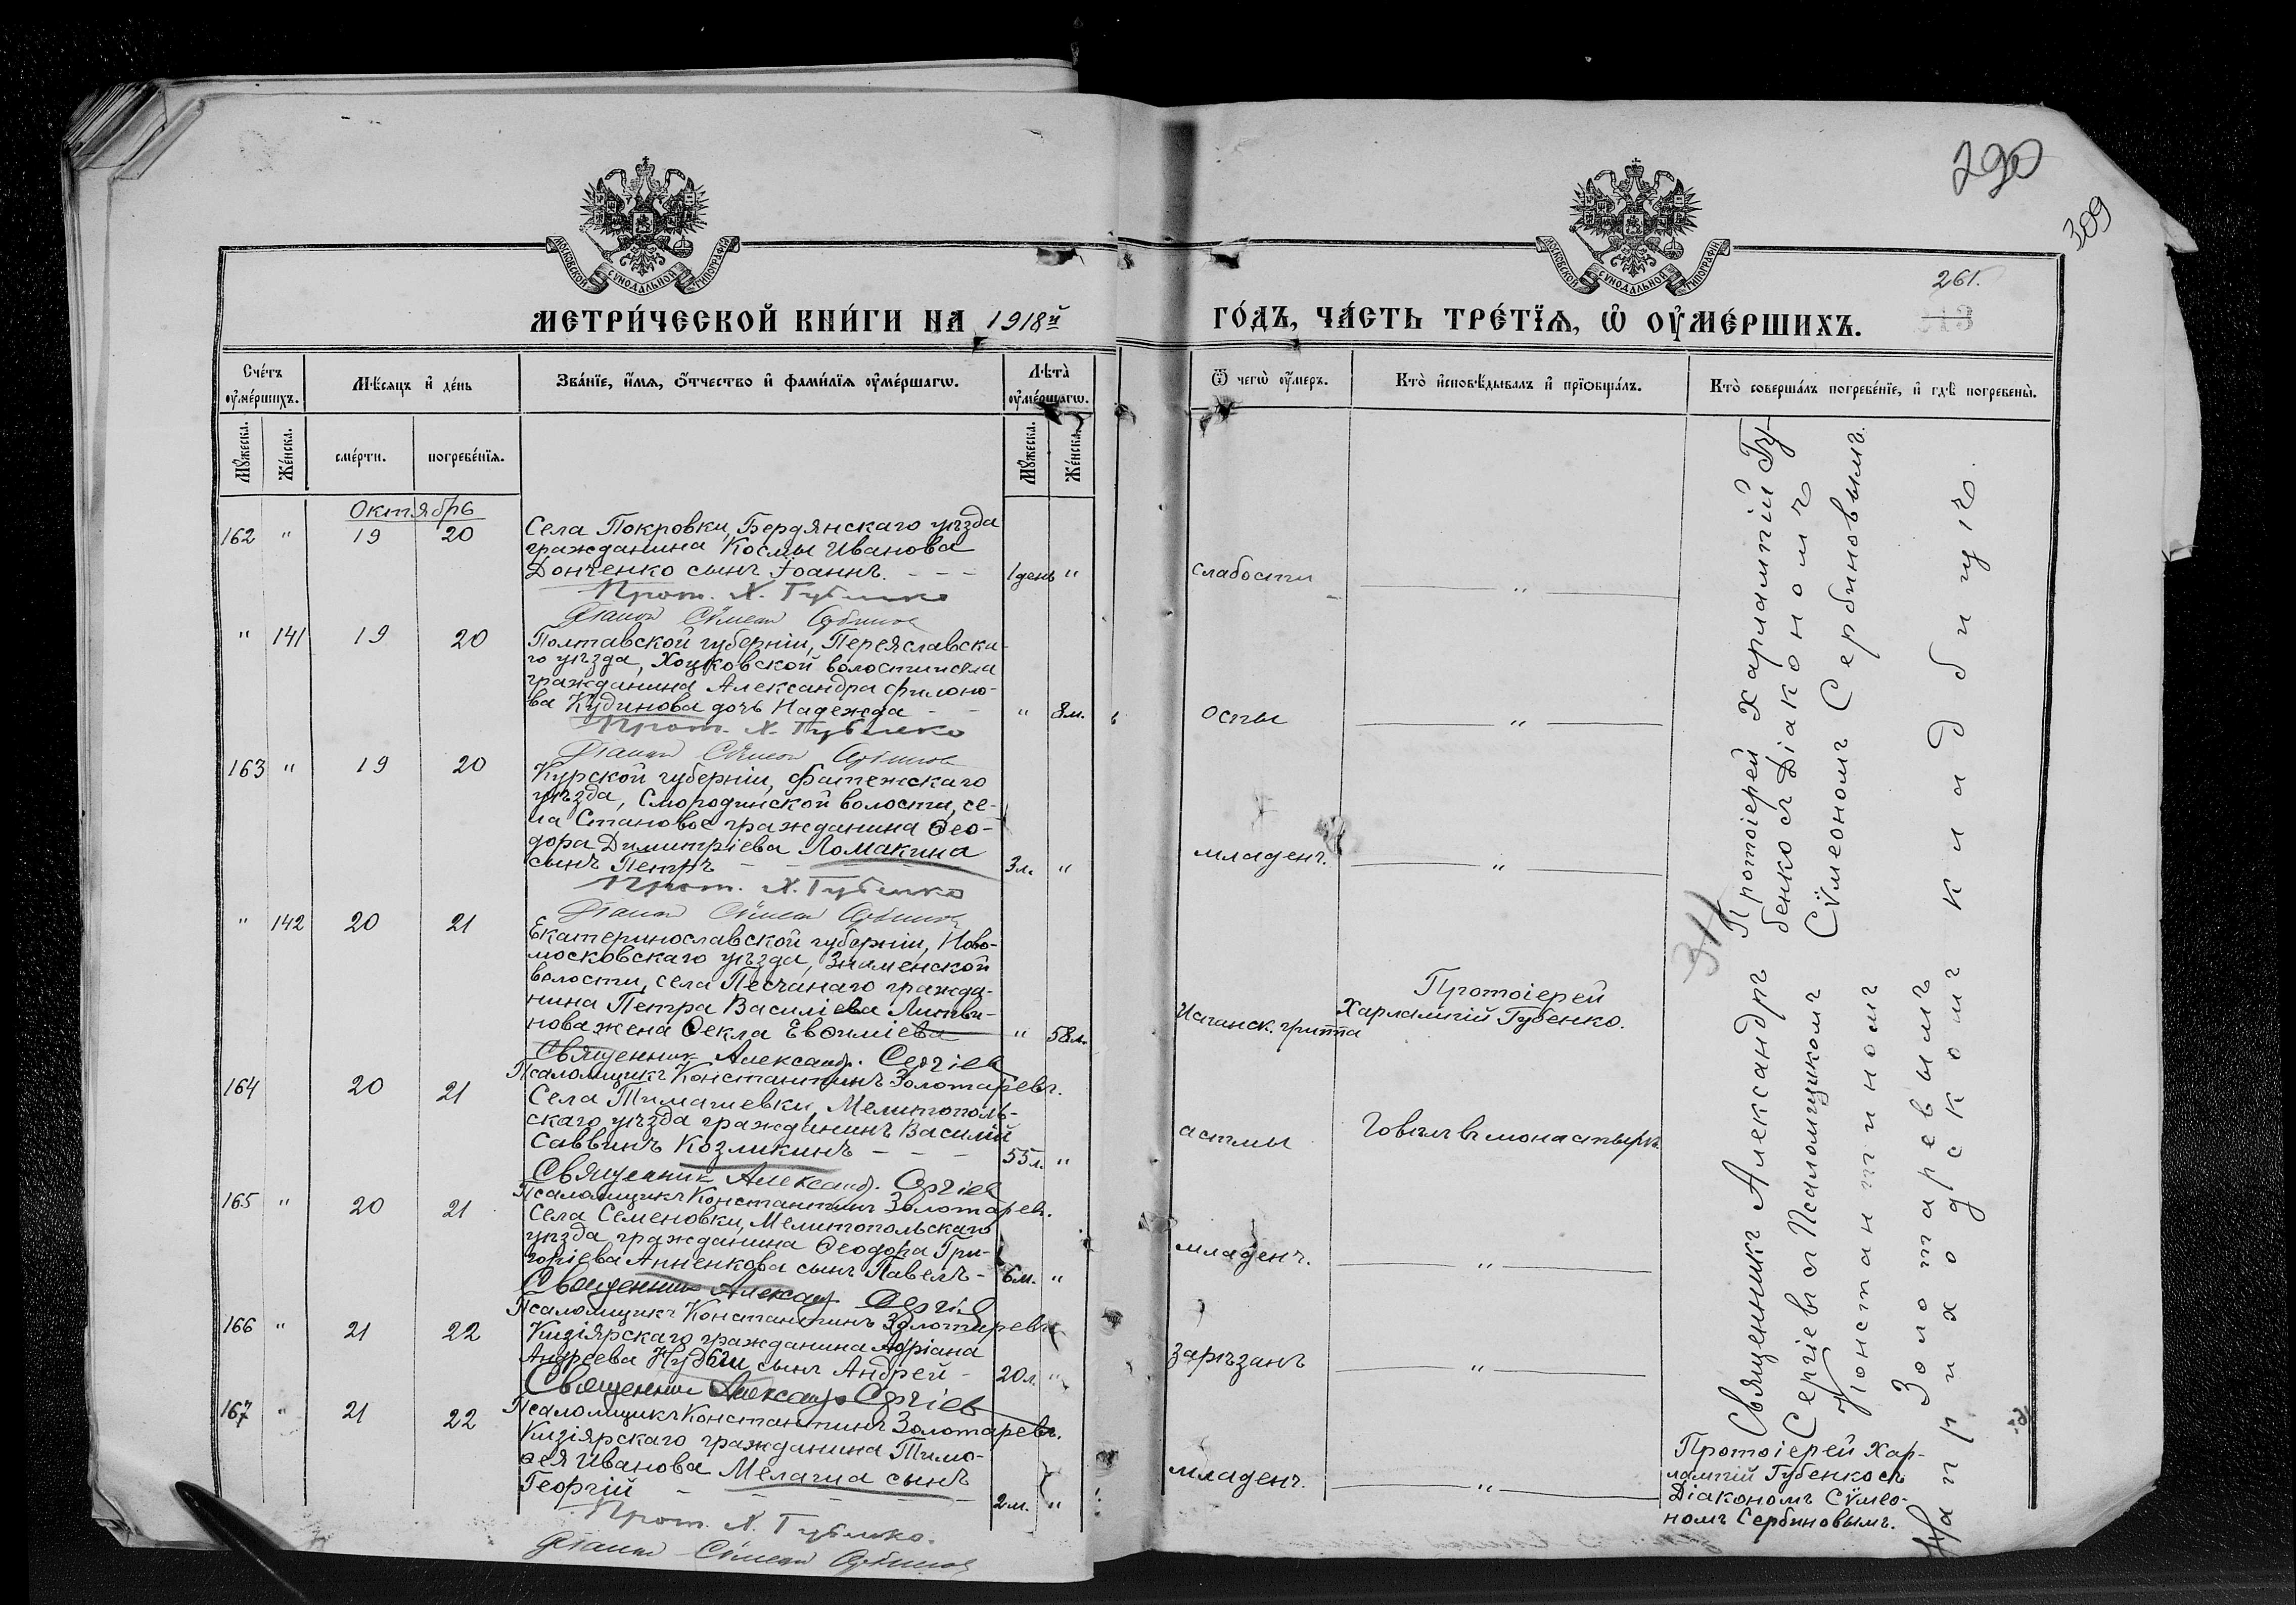 290
309
МОСКОВСКОЙ СУНОДАЛЬНОЙ ТИПОГРАФІИ
МОСКОВСКОЙ СУНОДАЛЬНОЙ ТИПОГРАФІИ
261.
МЕТРИ́ЧЕСКОЙ КНИ́ГИ НА 1918й
ГО́ДЪ, ЧА́СТЬ ТРЕ́ТЇЯ, Ѽ ОУ҆МЕ́РШИХЪ.
Сче́тъ оу҆ме́ршихъ.
Мѣ́сяцъ и҆ де́нь
Зва́нїе, и҆́мя, ѻ҆́тчество и҆ фами́лїя оу҆ме́ршагѡ.
Лѣ́та оу҆ме́ршагѡ.
Ѿ чегѡ̀ оу҆́меръ.
Кто̀ и҆сповѣ́дывалъ и҆ прїѡбща́лъ.
Кто̀ соверша́лъ погребе́нїе, и҆ гдѣ̀ погребены̀.
Мꙋ́жеска.
Же́нска.
сме́рти.
погребе́нїя.
Мꙋ́жеска.
Же́нска.
Октябрь
162 " 19 20
Села Покровки, Бердянскаго уѣзда
гражданина Космы Иванова
Донченко сынъ Іоаннъ. - - -
1 день "
слабости
"
Прот. Х. Губенко
Діакон Сѵмеон Сербинов
" 141 19 20
Полтавской губерніи, Переяславска-
го уѣзда, Хоцковской волости и села
гражданина Александра Филоно-
ва Кудинова дочь Надежда - -
" 8 м.
оспы
"
Прот. Х. Губенко
Діакон Сѵмеон Сербинов
163 " 19 20
Курской губерніи, Фатежскаго
уѣзда, Смородинской волости, се-
ла Становое гражданина Ѳео-
дора Димитріева Ломакина
сынъ Петръ - - - - -
3 л. "
младенч.
"
Прот. Х. Губенко
Діакон Сѵмеон Сербинов
" 142 20 21
Екатеринославской губерніи, Ново-
московскаго уѣзда, Знаменской
волости, села Песчанаго гражда-
нина Петра Василіева Литви-
нова жена Ѳекла Евѳиміева
" 58 л.
Испанск. гриппа
Протоіерей
Харлампій Губенко.
Священник Александр. Сергіев
Псаломщикъ Константинъ Золотаревъ.
164 20 21
Села Тимашевки, Мелитополь-
скаго уѣзда гражданинъ Василій
Саввинъ Козликинъ - - -
55 л. "
астмы
Говѣлъ въ монастырѣ
Священник Александ. Сергіев
Псаломщикъ Константинъ Золотаревъ.
165 " 20 21
Села Семеновки, Мелитопольскаго
уѣзда, гражданина Ѳеодора Гри-
горіева Анненкова сынъ Павелъ -
6 м. "
младенч.
"
Священник Александ Сергіев
Псаломщикъ Константинъ Золотаревъ
166 " 21 22
Кизіярскаго гражданина Адріана
Андреева сынъ Андрей -
20 л. "
зарѣзанъ
"
Священник Александр Сергіев
Псаломщикъ Константинъ Золотаревъ.
167 " 21 22
Кизіярскаго гражданина Тимо-
ѳея Иванова Мелагиа сынъ
Георгій - - - - -
2 м. "
младенч.
"
Прот. Х. Губенко.
Діакон Сѵмеон Сербинов
Протоіерей Харлампій Гу-
бенко съ Діакономъ
Сѵмеономъ Сербиновымъ.
Священникъ Александръ
Сергіевъ съ Псаломщикомъ
Константиномъ
Золотаревымъ
На приходскомъ кладбищѣ.
Протоіерей Хар-
лампій Губенко съ
Діакономъ Сѵмео-
номъ Сербиновымъ.